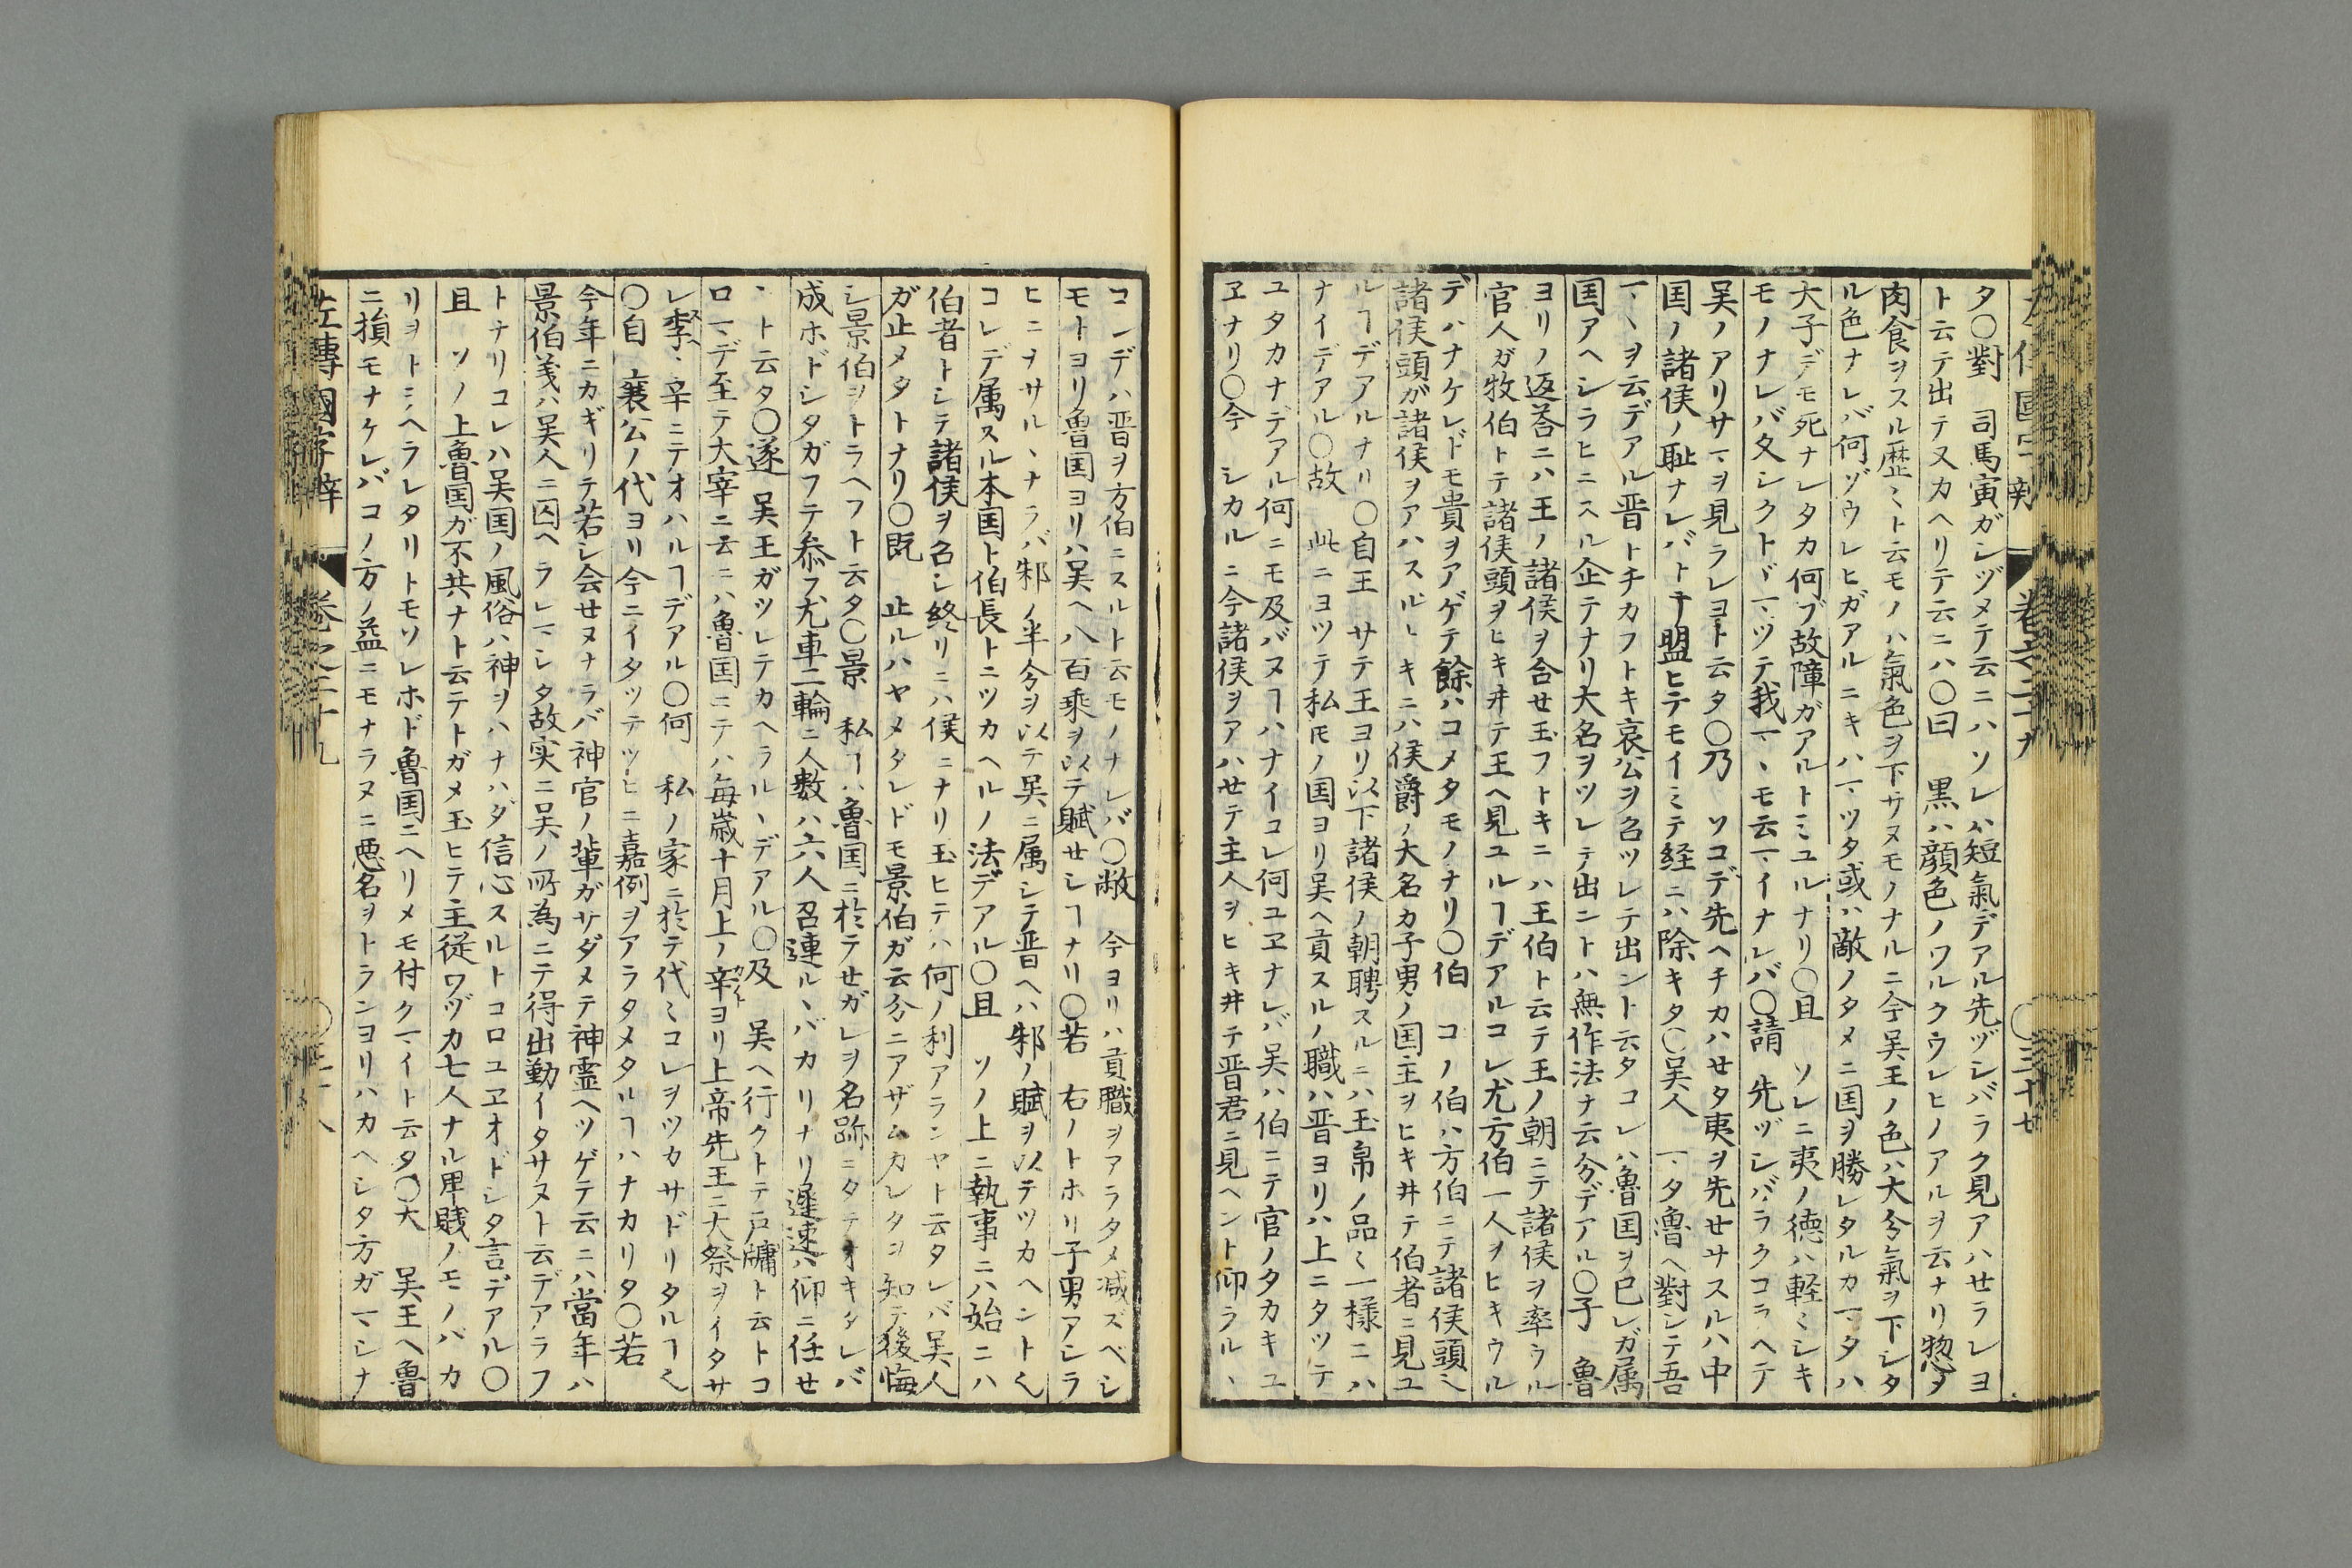 タ〇對　司馬寅ガシヅメテ云ニハソレハ短氣デアル先ヅシバラク見アハせラレヨ
ト云テ出テ又カヘリテ云ニハ〇曰　黒ハ顔色ノワルクウレヒノアルヲ云ナリ惣タ
肉食ヲスル歴〻ト云モノハ氣色ヲ下サヌモノナルニ今吴王ノ色ハ大分氣ヲ下シタ
ル色ナレバ何ゾウレヒガアルニキハマツタ或ハ敵ノタメニ国ヲ勝レタルカマタハ
大子デモ死ナレタカ何ブ故障ガアルトミユルナリ〇且　ソレニ夷ノ徳ハ軽〻シキ
モノナレバ久シクトヾマツテ我マヽモ云マイナレバ〇請　先ヅシバラクコラヘテ
吴ノアリサマヲ見ラレヨト云タ〇乃　ソコデ先ヘチカハせタ夷ヲ先せサスルハ中
国ノ諸侯ノ耻ナレバト于盟ヒテモイミテ経ニハ除キタ〇吴人　マタ魯ヘ對シテ吾
マヽヲ云デアル晋トチカフトキ哀公ヲ召ツレテ出ント云タコレハ魯国ヲ己レガ属
国アヘシラヒニスル企テナリ大名ヲツレテ出ントハ無作法ナ云分デアル〇子　魯
ヨリノ返荅ニハ王ノ諸侯ヲ合せ玉フトキニハ王伯ト云テ王ノ朝ニテ諸侯ヲ率ウル
官人ガ牧伯トテ諸侯頭ヲヒキ井テ王ヘ見ユルヿデアルコレ尤方伯一人ヲヒキウル
デハナケレドモ貴ヲアゲテ餘ハコメタモノナリ〇伯　コノ伯ハ方伯ニテ諸侯頭〻
諸侯頭が諸侯ヲアハスルトキニハ侯爵ノ大名カ子男ノ国主ヲヒキ井テ伯者ニ見ユ
ルヿデアルナリ〇自王　サテ王ヨリ以下諸侯ノ朝聘スルニハ玉帛ノ品〻一様ニハ
ナイデアル〇故　此ニヨツテ私𪜈ノ国ヨリ吴ヘ貢スルノ職ハ晋ヨリハ上ニタツテ
ユタカナデアル何ニモ及バヌヿハナイコレ何ユヱナレバ吴ハ伯ニテ官ノタカキユ
ヱナリ〇今　シカルニ今諸侯ヲアハせテ主人ヲヒキ井テ晋君ニ見ヘント仰ラルヽ
巻之二十九
〇三十七
コンデハ晋ヲ方伯ニスルト云モノナレバ〇敝　今ヨリハ貢職ヲアラタメ减ズベシ
モトヨリ魯国ヨリハ吴ヘ八百乘ヲ以テ賦せシヿナリ〇若　右ノトホリ子男アシラ
ヒニヲサルヽナラバ邾ノ半分ヲ以テ吴ニ属シテ晋ヘハ邾ノ賦ヲ以テツカヘント〻
コレデ属スル本国ト伯長トニツカヘルノ法デアル〇且　ソノ上ニ執事ニハ始ニハ
伯者トシテ諸侯ヲ召シ終リニハ侯ニナリ玉ヒテハ何ノ利アランヤト云タレバ吴人
ガ止メタトナリ〇既　止ルハヤメタレドモ景伯ガ云分ニアザムカレタヿ知テ後悔
シ景伯ヲトラヘフト云タ〇景　私ヿハ魯国ニ於テせガレヲ名跡ニタテオキタレバ
成ホドシタガフテ参フ尤車二輪ニ人数ハ六人召連ルヽバカリナリ遲速ハ仰ニ任せ
ヽト云タ〇遂　吴王ガツレテカヘラルヽデアル〇及　吴ヘ行クトテ戸牗ト云トコ
ロマデ至テ大宰ニ云ニハ魯国ニテハ毎歳十月上ノ辛ヨリ上帝先王ニ大祭ヲイタサ
レ季ヽ辛ニテオハルヿデアル〇何　私ノ家ニ於テ代〻コレヲツカサドリタルヿ〻
〇自　襄公ノ代ヨリ今ニイタツテツヒニ嘉例ヲアラタメタルヿハナカリタ〇若
今年ニカギリテ若シ会せヌナラバ神官ノ輩ガサダメテ神霊ヘツゲテ云ニハ當年ハ
景伯義ハ吴人ニ囚ヘラレマシタ故実ニ吴ノ所為ニテ得出勤イタサヌト云デアラフ
トナリコレハ吴国ノ風俗ハ神ヲハナハダ信心スルトコロユヱオドシタ言デアル〇
且　ソノ上魯国ガ不共ナト云テトガメ玉ヒテ主従ワヅカ七人ナル卑賎ノモノバカ
リヲトラヘラレタリトモソレホド魯国ニヘリメモ付クマイト云タ〇大　吴王ヘ魯
ニ損モナケレバコノ方ノ益ニモナラヌニ悪名ヲトランヨリハカヘシタ方ガマシナ
左傳國字辯　巻之二十九